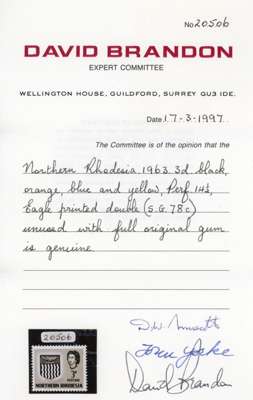 No 20506
DAVID BRANDON
EXPERT COMMITTEE
WELLINGTON HOUSE, GUILDFORD, SURREY GU3 1DE.
Date 17-3-1997.
The Committee is of the opinion that the
Northern Rhodesia. 1963. 3d black,
orange, blue and yellow, Perf. 14½,
Eagle printed double (S.G. 78c)
unused with full original gum
is genuine.
20506
NORTHERN RHODESIA
David Brandon